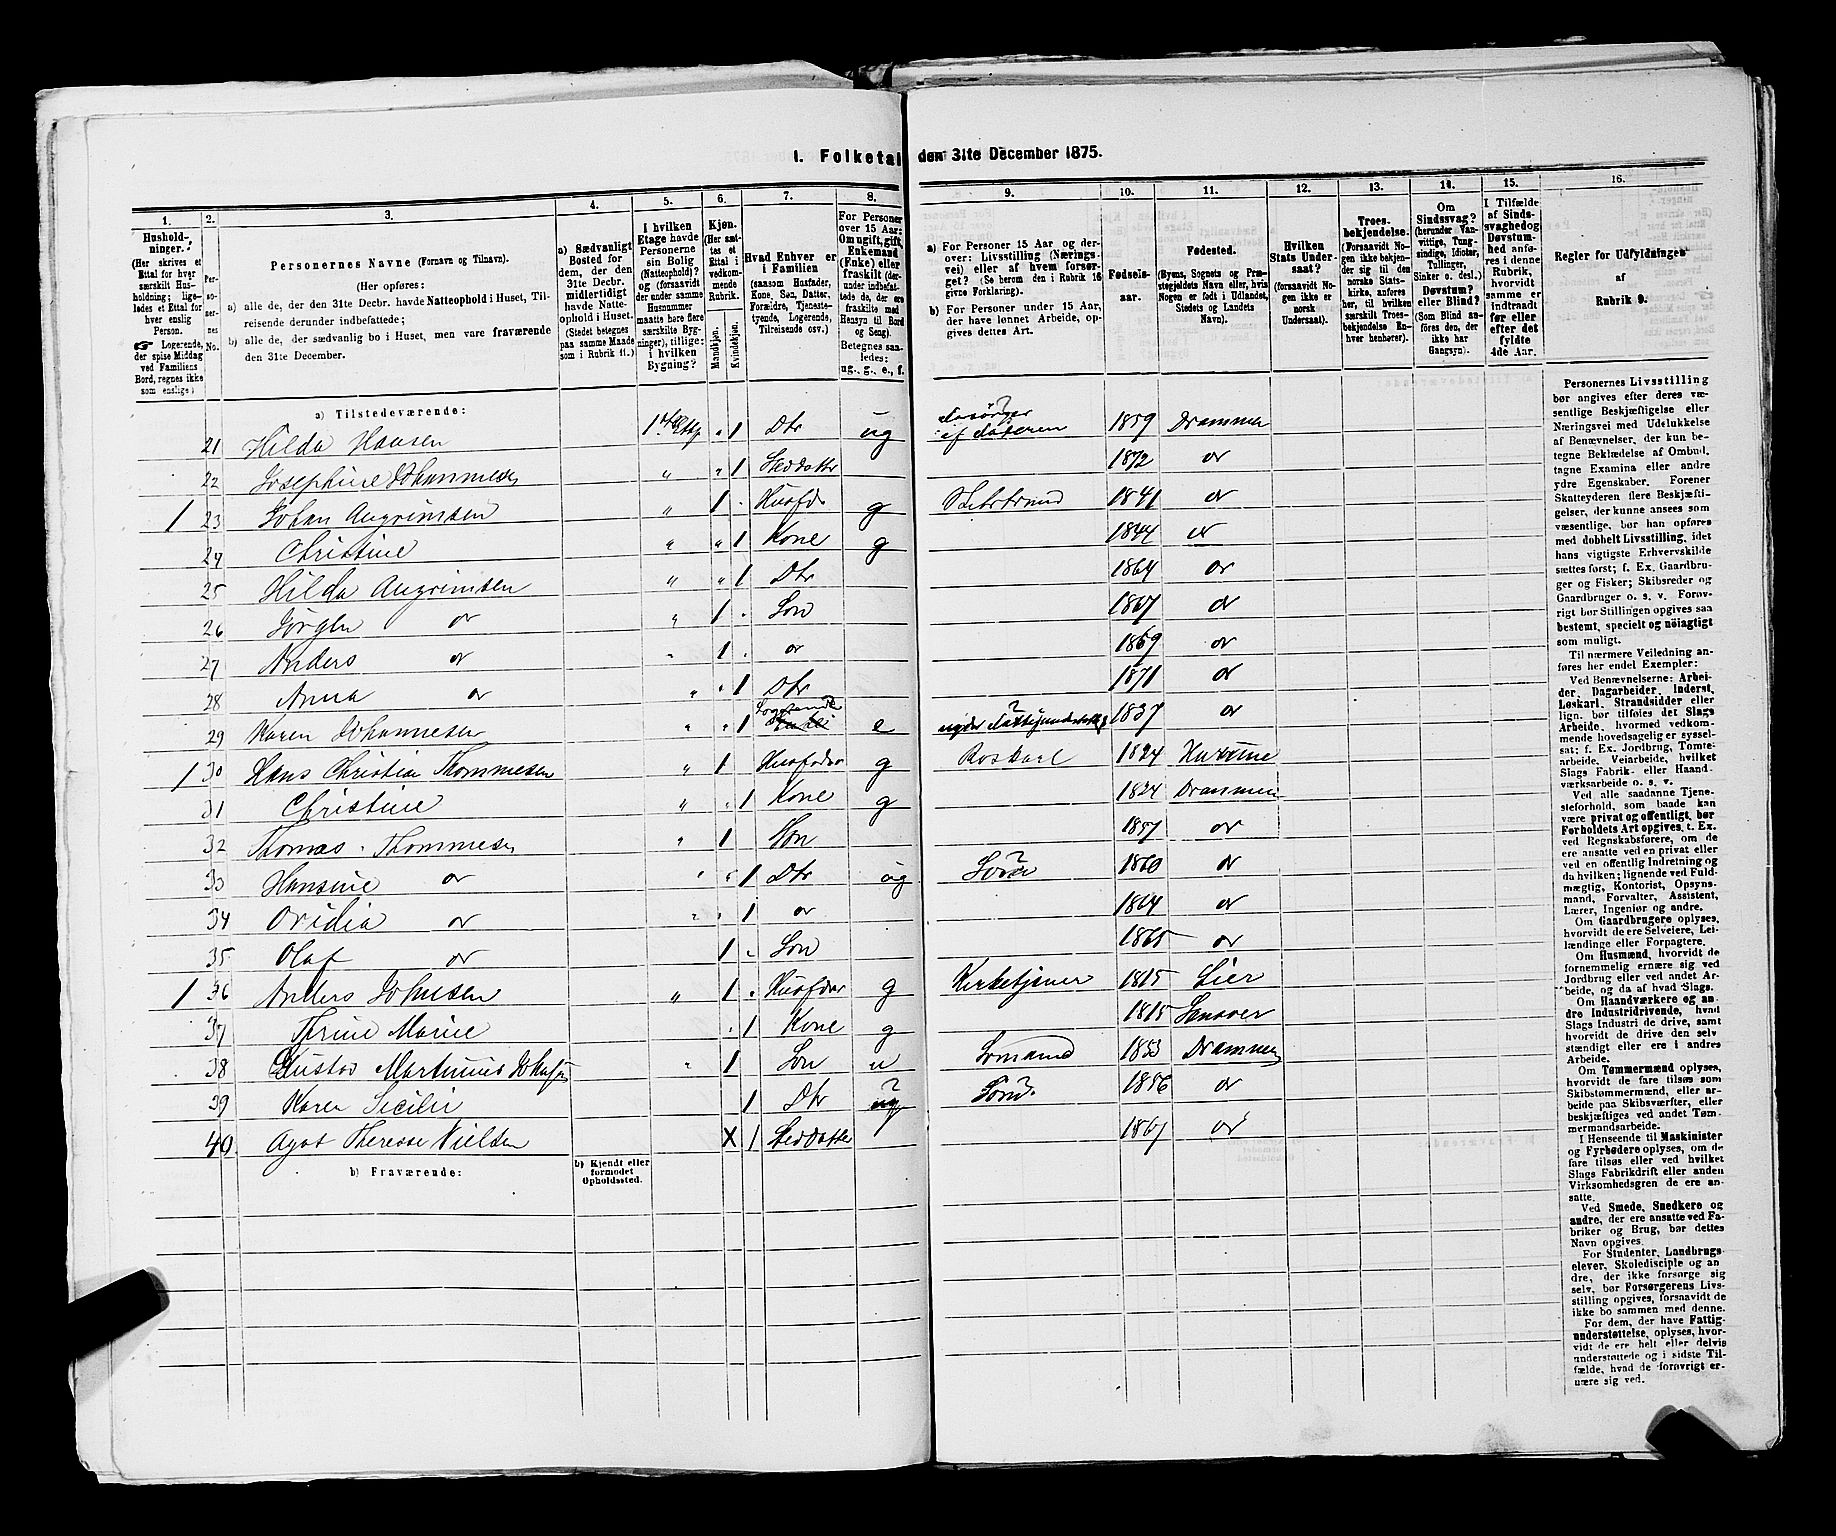 I. Folketal den 31te December 1875.
1. 2. 3. 4. 5. 6. 7. 8. 9. 10. 11. 12. 13. 14. 15. 16.
Hushold-
ninger.
(Her skrives et
Ettal for hver
særskilt Hus-
holdning; lige-
ledes et Ettal for
hver enslig
Person.
☞ Logerende,
der spise Middag
ved Familiens
Bord, regnes ikke
som enslige.)
Per-
so-
ner-
nes
No.
Personernes Navne (Fornavn og Tilnavn).
(Her opføres:
a) alle de, der den 31te Decbr. havde Natteophold i Huset, Til-
reisende derunder indbefattede;
b) alle de, der sædvanlig bo i Huset, men vare fraværende
den 31te December.
a) Sædvanligt
Bosted for
dem, der den
31te Decbr.
midlertidigt
havde Natte-
ophold i Huset.
(Stedet betegnes
paa samme Maade
som i Rubrik 11.)
I hvilken
Etage havde
Personerne
sin Bolig
(Natteophold)?
og (forsaavidt
der under samme
Husnummer
maatte høre flere
særskilte Byg-
ninger), tillige:
i hvilken
Bygning?
Kjøn.
(Her sæt-
tes et
Ettal i
vedkom-
mende
Rubrik.
Mandkjøn.
Kvindekjøn.
Hvad Enhver er
i Familien
(saasom Husfader,
Kone, Søn, Datter,
Forældre, Tjenes-
tyende, Logerende,
Tilreisende osv.)
For Personer
over 15 Aar:
Om ugift, gift,
Enkemand
(Enke) eller
fraskilt (der-
under indbefat-
tede de, der ere
fraskilte med
Hensyn til Bord
og Seng).
Betegnes saa-
ledes:
ug., g., e., f.
a) For Personer 15 Aar og der-
over: Livsstilling (Nærings-
vei) eller af hvem forsør-
get? (Se herom den i Rubrik 16
givne Forklaring).
b) For Personer under 15 Aar,
der have lønnet Arbeide, op-
gives dettes Art.
Fødsels-
aar.
Fødested.
(Byens, Sognets og Præ-
stegjeldets Navn eller, hvis
Nogen er født i Udlandet,
Stedets og Landets
Navn).
Hvilken
Stats Under-
saat?
(forsaavidt No-
gen ikke er
norsk
Undersaat).
Troes-
bekjendelse.
(Forsaavidt No-
gen ikke bekjen-
der sig til den
norske Stats-
kirke, anføres
her, til hvilken
særskilt Troes-
bekjendelse En-
hver henhører).
Om
Sindssvag?
(herunder Van-
vittige, Tung-
sindige, Idioter,
Tullinger,
Sinker o. desl.)
Døvstum?
eller Blind?
(Som Blind an-
føres den, der
ikke har
Gangsyn).
I Tilfælde
af Sinds-
svaghed og
Døvstum-
hed anfø-
res i denne
Rubrik,
hvorvidt
samme er
indtraadt
før eller
efter det
fyldte
4de Aar.
Regler for Udfyldningen
af
Rubrik 9.
a) Tilstedeværende:
21 Hilda Hansen 1ste Etg " 1 Dtr ug forsørger af Faderen 1859 Drammen
22 Josephine Johannesen " " 1 Steddatter 1872 do
1 23 Johan Angrimsen " 1 Husfdr g 1841 do
24 Christine " " 1 Kone g 1844 do
25 Hilda Angrimsen " " 1 Dtr 1864 do
26 Jørgen do " 1 Søn 1867 do
27 Anders do " 1 do 1869 do
28 Anna do " " 1 Dtr 1871 do
29 Karen Johannesen " " 1 Logerende e nyder Fattigunderstøttelse 1837 do
1 30 Hans Christian Thommesen " 1 Husfader g Roskarl 1824 Hurum
31 Christine " " 1 Kone g 1824 Drammen
32 Thomas Thommesen " 1 Søn 1857 do
33 Hansine do " " 1 Dtr ug 1860 do
34 Ovidia do " " 1 do 1864 do
35 Olaf do 1 Søn 1865 do
1 36 Anders Johnsen " 1 Husfader g Kirketjener 1815 Lier
37 Thrine Marie 1 Kone g 1815
38 Gustav Martinius Johnsen " 1 Søn u Sømand 1853 Drammen
39 Karen Sicilie 1 Dtr ug 1856 do
40. Agot Therese Nielsen X 1 Steddatter 1867 do
b) Fraværende:
b) Kjendt eller
formodet
Opholdssted.
Personernes Livsstilling
bør angives efter deres væ-
sentlige Beskjæftigelse eller
Næringsvei med Udelukkelse
af Benævnelser, der kun be-
tegne Beklædelse af Ombud,
tagne Examina eller andre
ydre Egenskaber. Forener
Skatteyderen flere Beskjæfti-
gelser, der kunne ansees som
væsentlige, bør han opføres
med dobbelt Livsstilling, idet
hans vigtigste Erhvervskilde
sættes først; f. Ex. Gaardbru-
ger og Fisker; Skibsreder og
Gaardbruger o. s. v. Forøv-
rigt bør Stillingen opgives saa
bestemt, specielt og nøiagtigt
som muligt.
Til nærmere Veiledning an-
føres her endel Exempler:
Ved Benævnelserne: Arbei-
der, Dagarbeider, Inderst,
Løskarl, Strandsidder eller
lign. bør tilføies det Slags
Arbeide, hvormed vedkom-
mende hovedsagelig er syssel-
sat; f. Ex. Jordbrug, Tomte-
arbeide, Veiarbeide, hvilket
Slags Fabrik- eller Haand-
værksarbeide o. s. v.
Ved alle saadanne Tjene-
steforhold, som baade kan
være privat og offentligt, bør
Forholdets Art opgives, t. Ex.
ved Regnskabsførere, om de
ere ansatte ved en privat eller
ved en offentlig Indretning og
da hvilken; lignende ved Fuld-
mægtig, Kontorist, Opsyns-
mand, Forvalter, Assistent,
Lærer, Ingeniør og andre.
Om Gaardbrugere oplyses,
hvorvidt de ere Selveiere, Lei-
lændinge eller Forpagtere.
Om Husmænd, hvorvidt de
fornemmelig ernære sig ved
Jordbrug eller ved andet Ar-
beide, og da af hvad Slags.
Om Haandværkere og an-
dre Industridrivende, hvad
Slags Industri de drive, samt
hvorvidt de drive den selv-
stændigt eller ere i andres
Arbeide.
Om Tømmermænd oplyses,
hvorvidt de fare tilsøs som
Skibstømmermænd, eller ar-
beide paa Skibsværfter, eller
beskjæftiges ved andet Tøm-
mermandsarbeide.
I Henseende til Maskinister
og Fyrbødere oplyses, om de
fare tilsøs eller ved hvilket
Slags Fabrikdrift eller anden
Virksomhedsgren de ere an-
satte.
Ved Smede, Snedkere og
andre, der ere ansatte ved Fa-
briker og Brug, bør dettes
Navn opgives.
For Studenter, Landbrugs-
elever, Skoledisciple og an-
dre, der ikke forsørge sig
selv, bør Forsørgerens Livs-
stilling opgives, forsaavidt de
ikke bo sammen med denne.
For dem, der have Fattig-
understøttelse, oplyses, hvor-
vidt de ere helt eller delvis
understøttede og i sidste Til-
fælde, hvad de forøvrigt er-
nære sig ved.